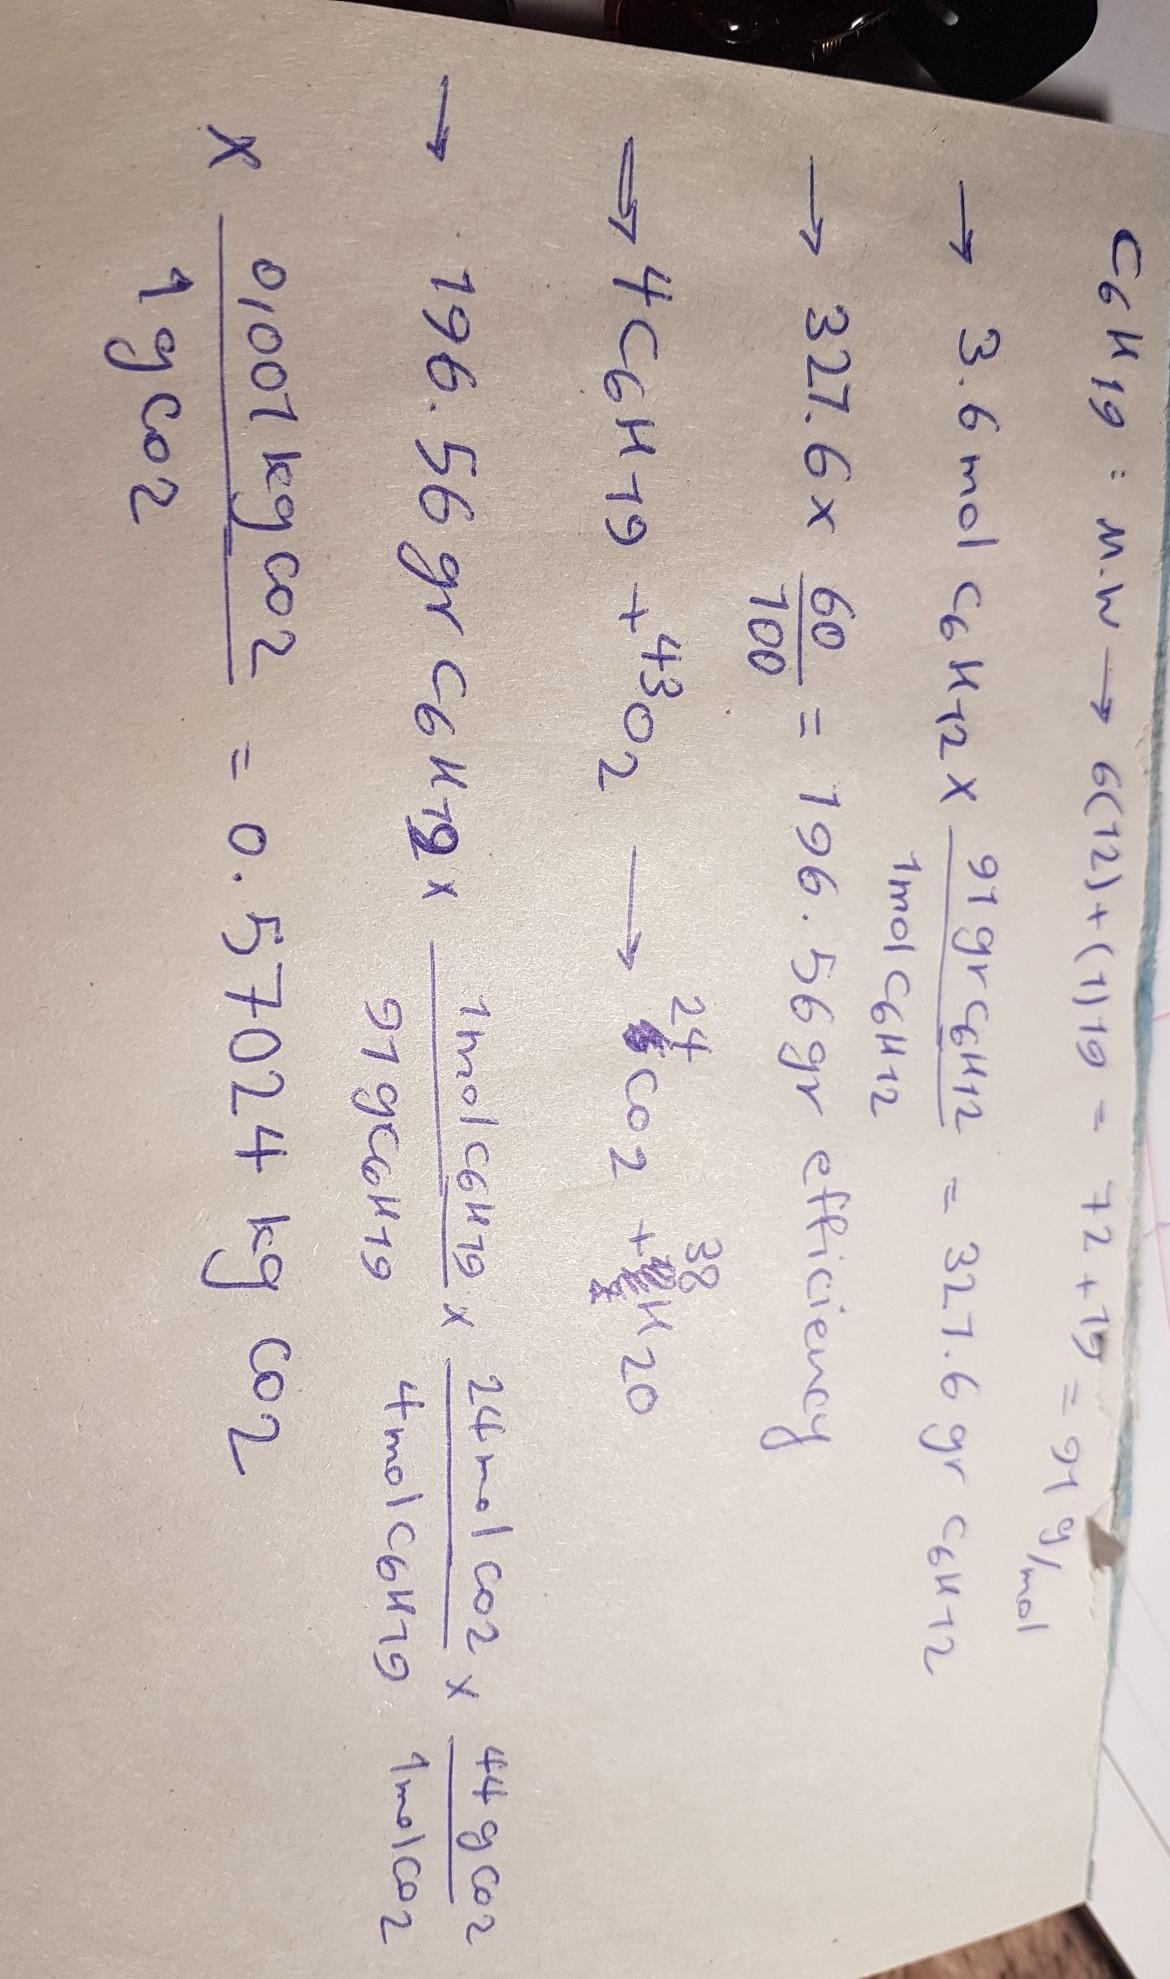 C6H19 : M.W → 6(12)+(1)19 = 72+19 = 91 g/mol
→ 3.6 mol C6H12 x 91gr C6H12 / 1mol C6H12 = 327.6 gr C6H12
→ 327.6 x 60/100 = 196.56gr efficiency
⇒ 4C6H19 + 43O2 → 24CO2 + 38H2O
→ 196.56gr C6H12 x 1mol C6H19 / 91g C6H19 x 24mol CO2 / 4mol C6H19 x 44g CO2 / 1mol CO2
x 0,001kg CO2 / 1g CO2 = 0.57024 kg CO2